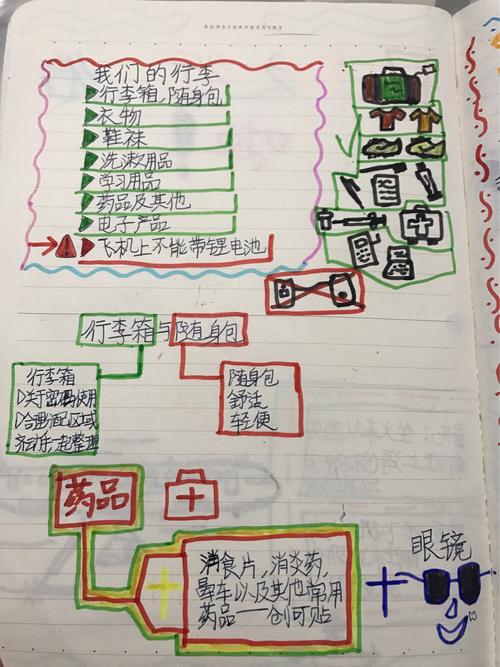 我们的行李
行李箱,随身包
衣物
鞋袜
洗漱用品
学习用品
药品及其他
电子产品
飞机上不能带锂电池
行李箱与随身包
行李箱
①关于密码使用
②合理分配区域
随身包
舒适
轻便
药品
消食片,消炎药,
晕车以及其他常用
药品——创可贴
眼镜